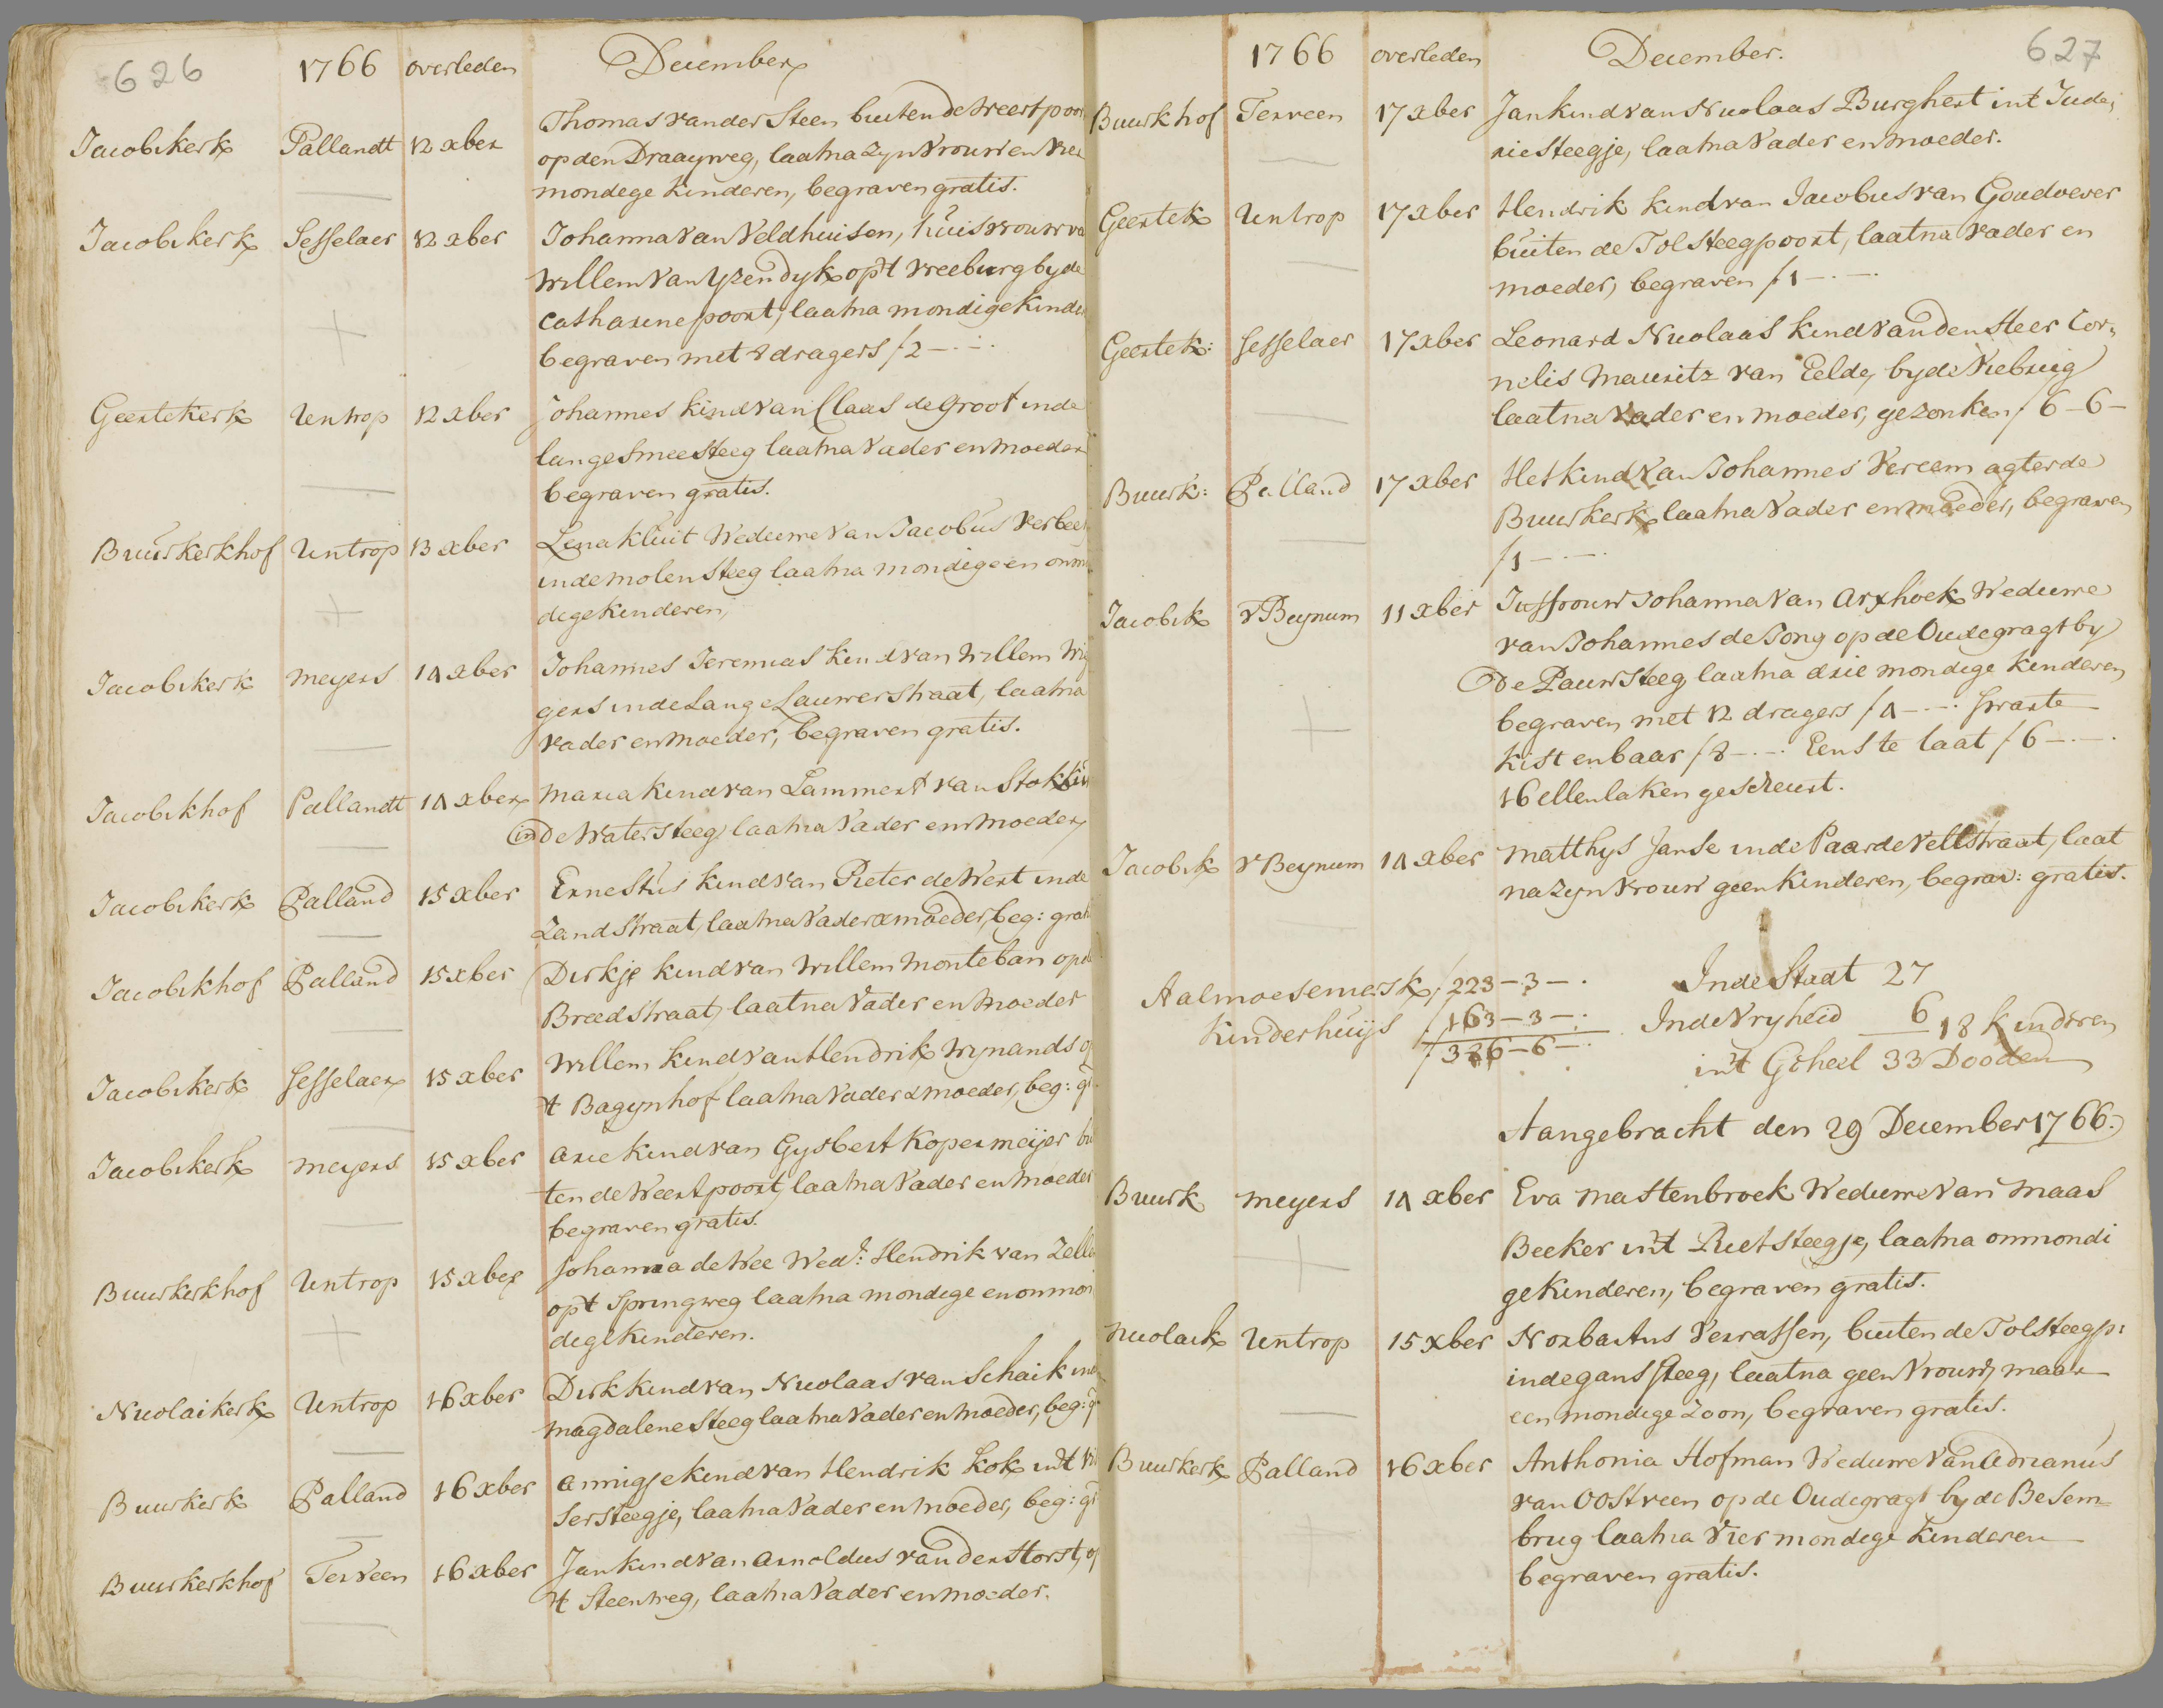 626 1766 overleden December
Jacobikerk Pallandt 12 xber Thomas van der Steen buiten de Weertpoor
op den Draayweg, laatna zyn Vrouw en vier
mondege kinderen, begraven gratis.
Jacobikerk Sesselaer 12 xber Johanna van Veldhuisen, huisvrouw va
Willem van Yzendyk op't Vreeburg by de
Catharine poort, laatna mondige kinder
begraven met 8 dragers f 2 –.–.
Geertekerk Untrop 12 xber Johannes kind van Claas de Groot inde
lange Smeesteeg laatna Vader en moeder
begraven gratis.
Buurkerkhof Untrop 13 xber Lena Kluit Weduwe van Jacobus Verbee
inde molensteeg laatna mondige en onm
dege kinderen,
Jacobikerk Meyers 14 xber Johannes Jeremias kind van Willem Wi
gers inde Lange Lauwerstraat, laatna
vader en moeder, begraven gratis.
Jacobikhof Pallandt 14 xber Maria kind van Lammert van Stok
inde Watersteeg laatna Vader en moeder
Jacobikerk Palland 15 xber Ernestus kind van Pieter de Wert inde
Zandstraat, laatna Vader & moeder, beg: grat
Jacobikhof Palland 15 xber Dirkje kind van Willem Monteban op d
Breedstraat, laatna Vader en moeder
Jacobikerk Sesselaer 15 xber Willem kind van Hendrik Wynands o
't Bagynhof laatna Vader & moeder, beg: g
Jacobikerk Meyers 15 xber Arie kind van Gysbert Kopermeijer bu
ten de Weertpoort, laatna Vader en moeder
begraven gratis.
Buurkerkhof Untrop 15 xber Johanna de Wee Wed: Hendrik van Zelle
op't Springweg laatna mondege en onmon
dege kinderen.
Nicolaikerk Untrop 16 xber Dirk kind van Nicolaas van Schaik in
Magdalenesteeg laatna Vader en moeder, beg: g
Buurkerk Palland 16 xber Annigje kind van Hendrik Kok in't Vi
sersteegje, laatna Vader en moeder, beg: g
Buurkerkhof Terveen 16 xber Jan kind van Arnoldus van der Horst, o
't Steenweg, laatna Vader en moeder.
1766 overleden December. 627
Buurkhof Terveen 17 xber Jan kind van Nicolaas Burghert int Jude,
rie Steegje, laatna Vader en moeder.
Geertek Untrop 17 xber Hendrik kind van Jacobus van Goudoever
buiten de Tolsteegpoort, laatna Vader en
moeder, begraven f 1 –.–.
Geertek: Sesselaer 17 xber Leonard Nicolaas kind van den Heer Cor,
nelis Mauritz van Eelde, by de Viebrug
laatna Vader en moeder, gezonken f 6–6–
Buurk: Palland 17 xber Het kind van Johannes Vereem agter de
Buurkerk laatna Vader en moeder, begraven
f 1 –.–.
Jacobik v Beynum 11 xber Juffrouw Johanna van Arxhoek Weduwe
van Johannes de Jong op de Oudegragt by
De Pauwsteeg laatna drie mondege kinderen
begraven met 12 dragers f 4 –.–. Swarte
kist en baar f 8 –.–. Eens te laat f 6 –.–.
16 ellen laken gescheurt.
Jacobik v Beynum 14 xber Matthys Janse inde Paardeveltstraat, laat
na zyn vrouw geen kinderen, begrav: gratis.
Aalmoesemersk f 223–3–. Inde Stadt 27
Kinderhuijs f 163–3–. Inde Vryheid 6 18 kinderen
f 386–6–. in't Geheel 33 Dooden
Aangebracht den 29 December 1766.
Buurk Meyers 14 xber Eva Mastenbroek Weduwe van Maas
Beeker in't Rietsteegje, laatna onmondi
ge kinderen, begraven gratis.
Nicolaik Untrop 15 xber Norbartus Verrassen, buiten de Tolsteegp:
inde ganssteeg, laatna geen Vrouw, maar
een mondege Zoon, begraven gratis.
Buurkerk Palland 16 xber Anthonia Hofman Weduwe van Adrianus
van Oostveen op de Oudegragt by de Besem=
brug laatna Vier mondege kinderen
begraven gratis.